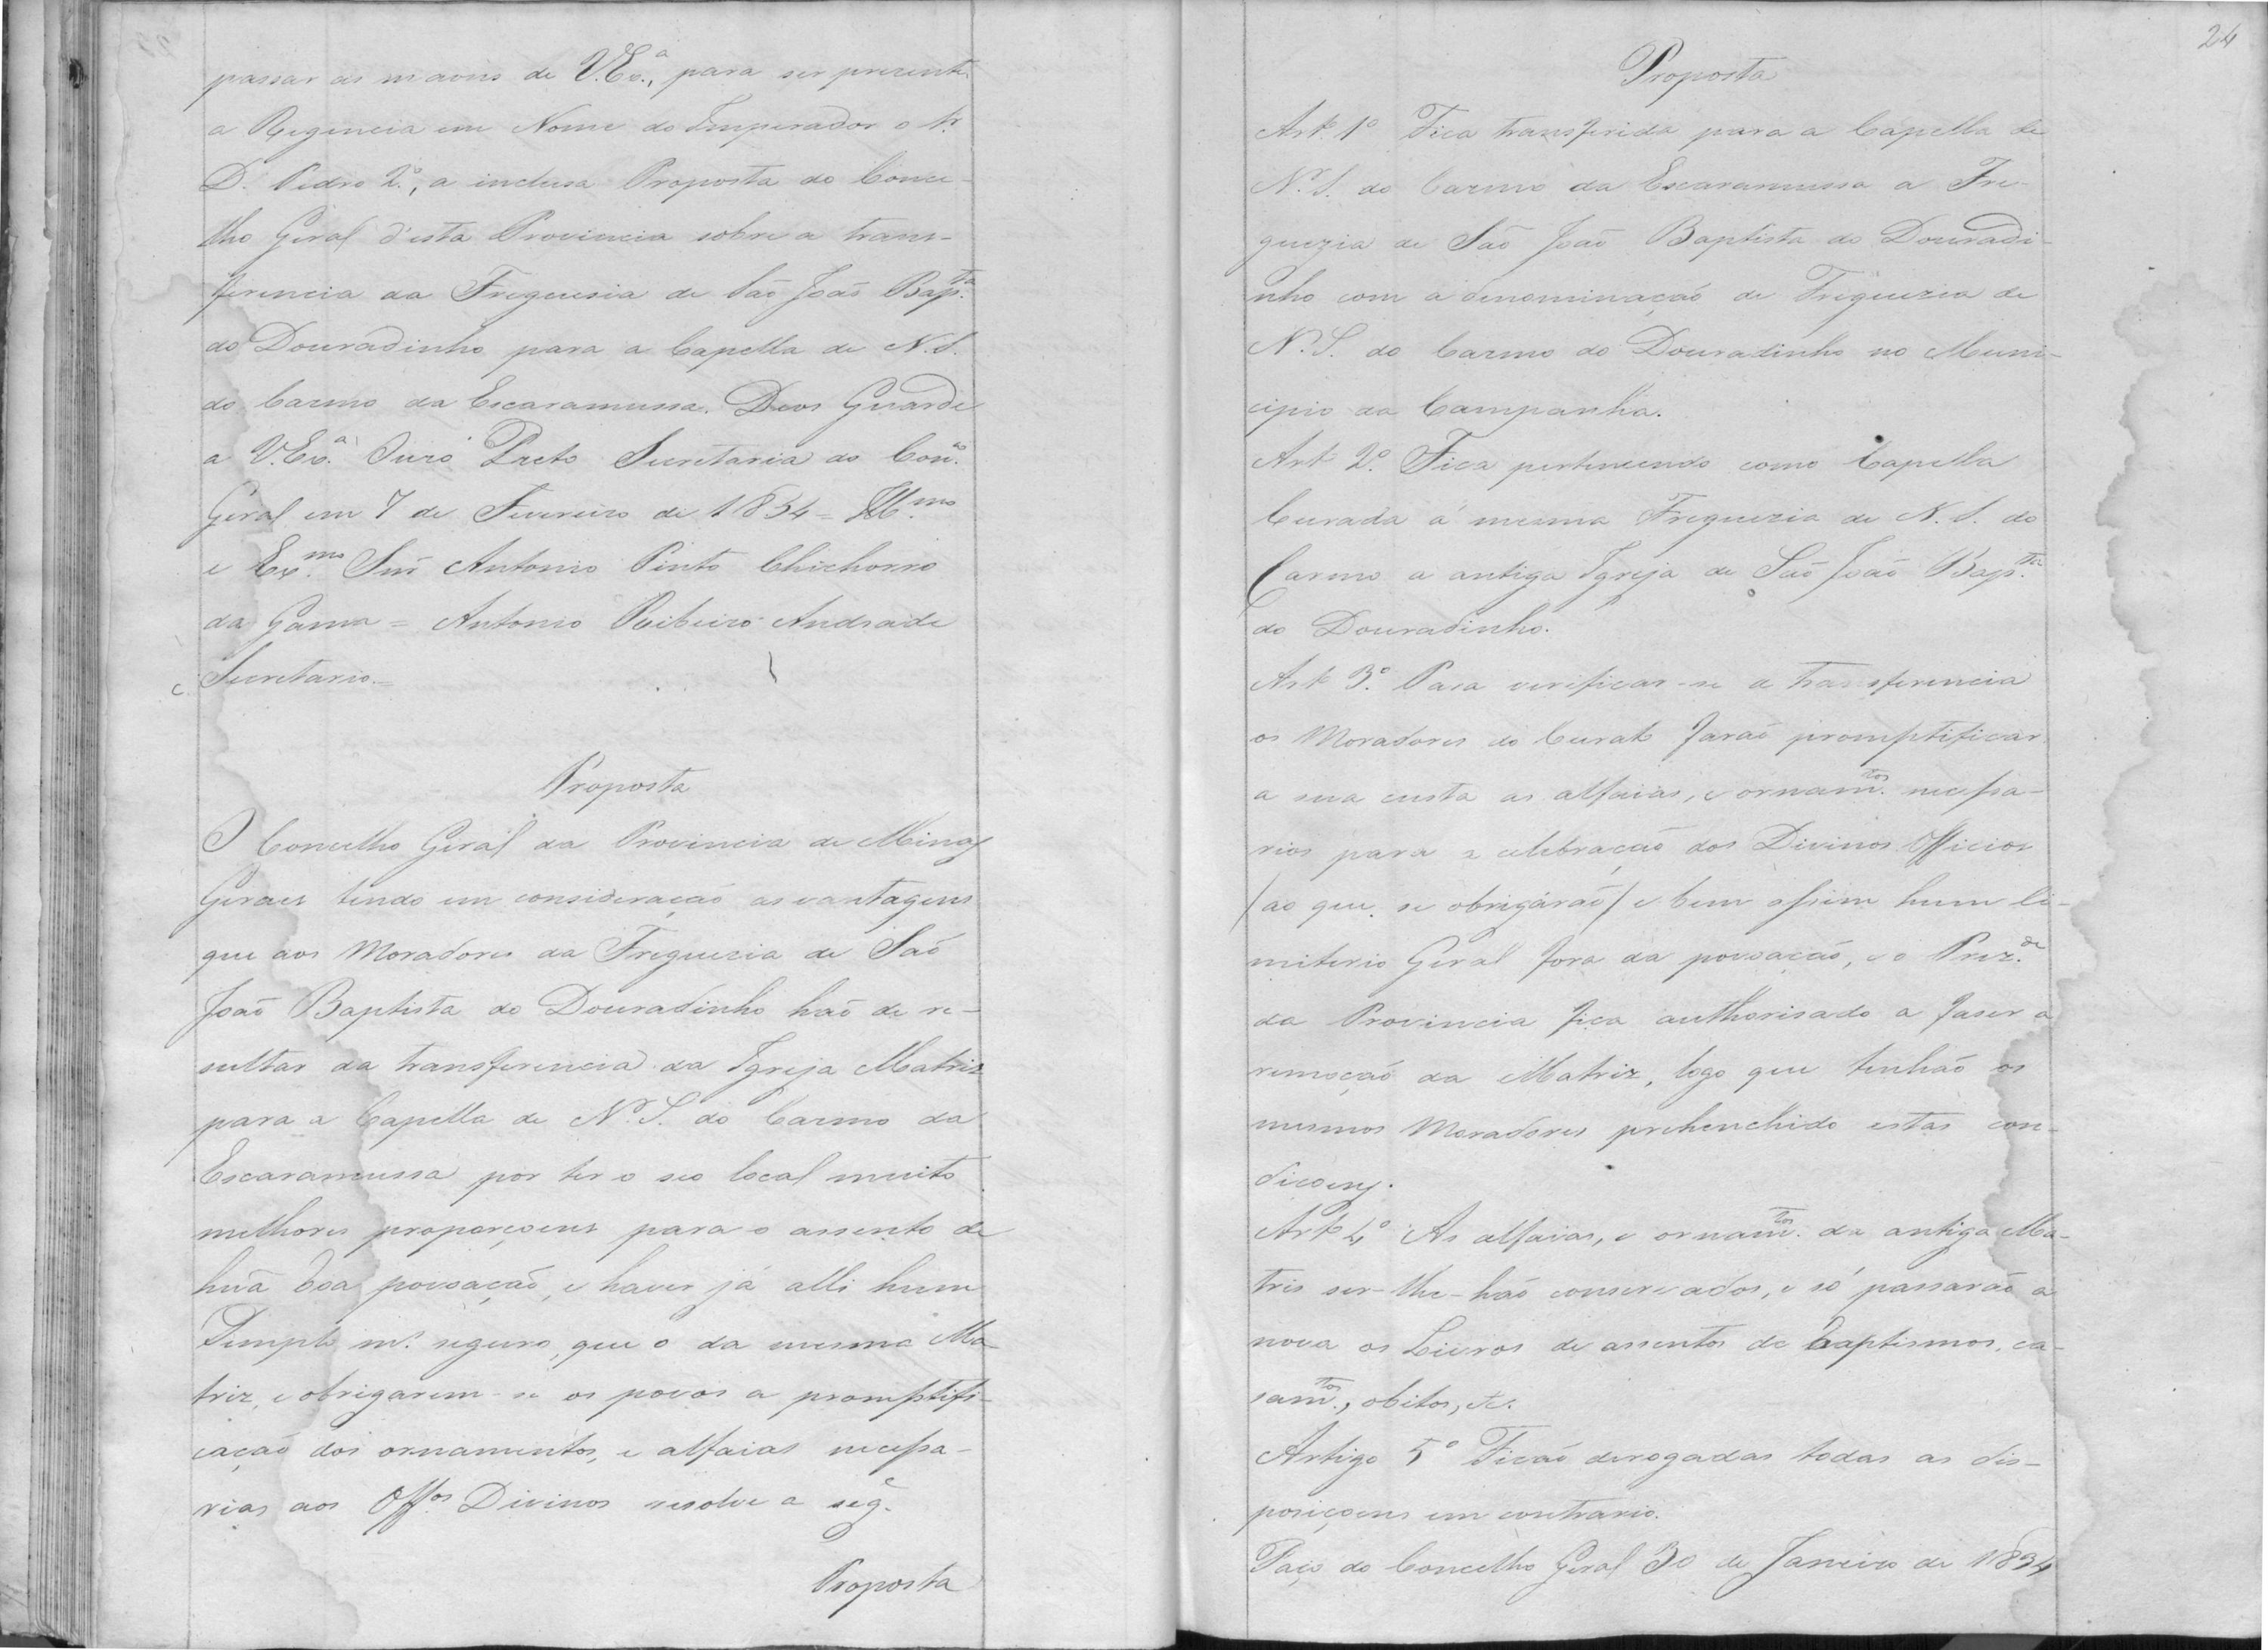 passar as maons de V. Ex.ª, para ser prezente
a Regencia em Nome do Imperador o Sr.
D. Pedro 2.º, a inclusa Proposta do Conce-
lho Geral d'esta Provincia sobre a trans-
ferencia da Freguesia de São João Bap.ta
do Douradinho para a Capella de N. S.
do Carmo da Escaramussa. Deos Guarde
a V. Ex.ª Ouro Preto Secretaria do Con.º
Geral em 7 de Fevereiro de 1834 = Ill.mo
e Ex.mo Snr Antonio Pinto Chichorro
da Gama = Antonio Ribeiro Andrade
Secretario =
Proposta
O Concelho Geral da Provincia de Minas
Geraes tendo em consideração as vantagens
que aos Moradores da Freguezia de São
João Baptista do Douradinho hão de re-
sultar da transferencia da Igreja Matriz
para a Capella de N. S. do Carmo da
Escaramussa por ter o seo local muito
melhores proporçoens para o assento de
huã boa povoação, e haver já alli hum
Templo m.º seguro, que o da mesma Ma-
triz, e obrigarem-se os povos a promptifi-
cação dos ornamentos, e alfaias necessa-
rias aos Off.os Divinos resolve a seg.e
Proposta
24
Proposta
Art.º 1º Fica transferida para a Capella de
N. S. do Carmo da Escaramussa a Fre-
guezia de São João Baptista do Douradi-
nho com a denominação de Freguezia de
N. S. do Carmo do Douradinho no Muni-
cipio da Campanha.
Art 2.º Fica pertencendo como Capella
Curada á mesma Freguezia de N. S. do
Carmo a antiga Igreja de São João Bap.ta
do Douradinho.
Art.º 3.º Para verificar-se a transferencia
os Moradores do Curato farão promptificar
a sua custa as alfaias, e ornam.tos necessa-
rios para a celebração dos Divinos Officios
/ao que se obrigárão/ e bem assim hum Ci-
miterio Geral fora da povoação, e o Prez.de
da Provincia fica authorisado a faser a
remoção da Matriz, logo que tenhão os
mesmos Moradores prehenchido estas con-
diçoens.
Art.º 4º As alfaias, e ornam.tos da antiga Ma-
tris ser-lhe-hão conservados, e só passarão a
nova os Livros de assentos de baptismos, ca-
sam.tos, obitos, &c.
Artigo 5º Ficão derogadas todas as dis-
posiçoens em contrario.
Paço do Concelho Geral 30 de Janeiro de 1834